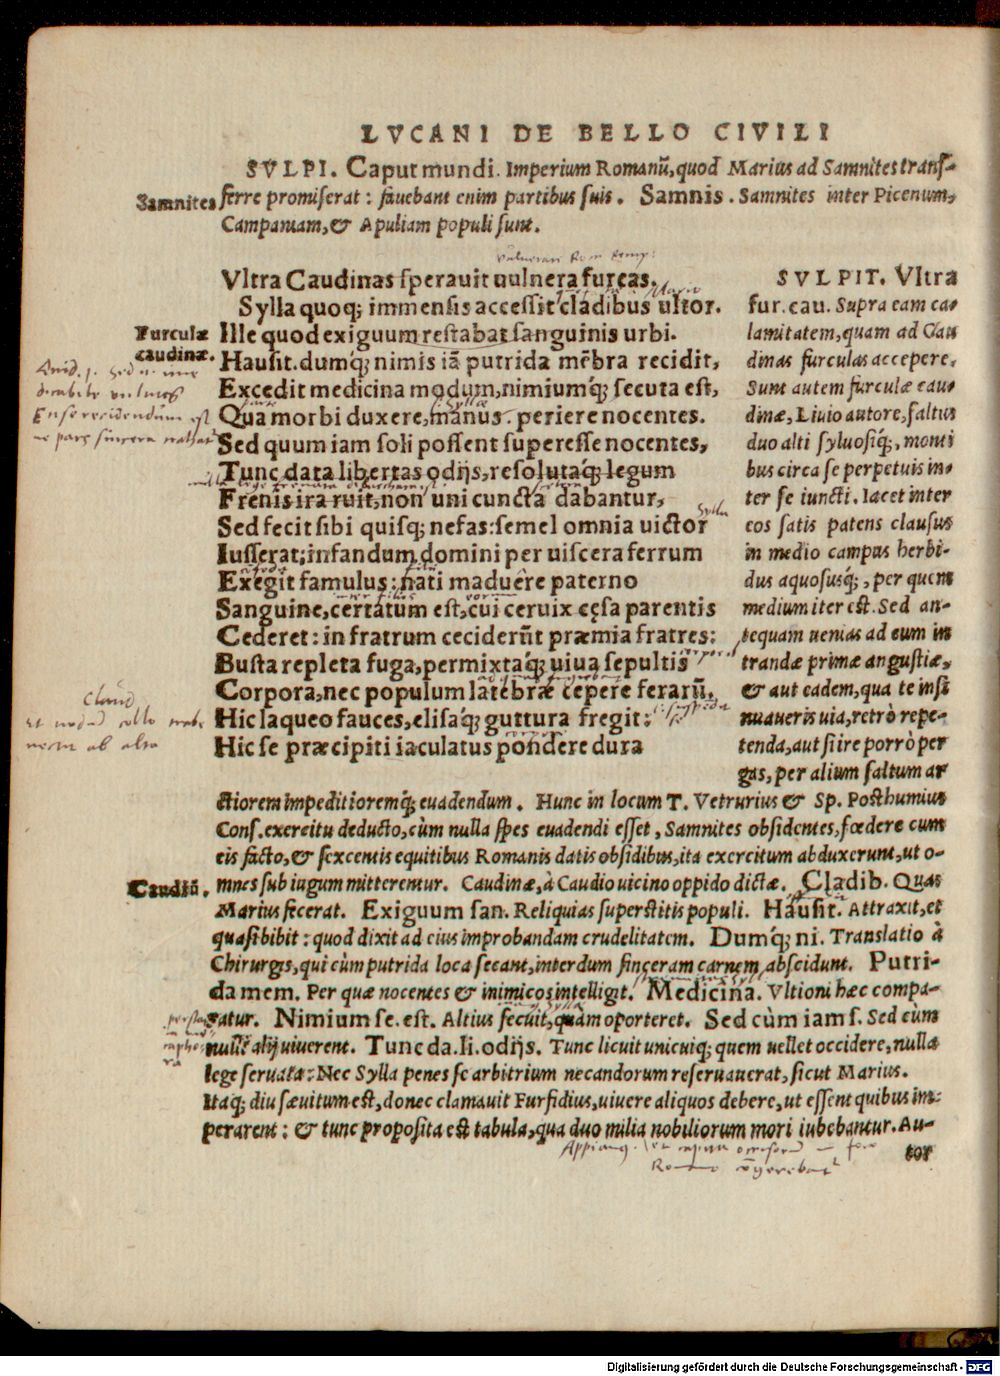 LVCANI DE BELLO CIVILI
SVLPI. Caput mundi. Imperium Romanū, quod Marius ad Samnites trans-
Samnites
ferre promiserat : fauebant enim partibus suis. Samnis. Samnites inter Picenum,
Campaniam, & Apuliam populi sunt.
Vltra Caudinas sperauit uulnera furcas.
Sylla quoq; immensis accessit cladibus ultor.
Furculæ
Ille quod exiguum restabat sanguinis urbi.
caudinæ.
Hausit. dumq́; nimis iā putrida mēbra recidit,
Excedit medicina modum, nimiumq́; secuta est,
Qua morbi duxere, manus. periere nocentes.
Sed quum iam soli possent superesse nocentes,
Tunc data libertas odijs, resolutaq́; legum
Frenis ira ruit, non uni cuncta dabantur,
Sed fecit sibi quisq; nefas: semel omnia uictor
Iusserat; infandum domini per uiscera ferrum
Exegit famulus: nati maduêre paterno
Sanguine, certatum est, cui ceruix cęsa parentis
Cederet: in fratrum ceciderūt præmia fratres:
Busta repleta fuga, permixtaq́; uiua sepultis
Corpora, nec populum latebræ cepere ferarū.
Hic laqueo fauces, elisaq́; guttura fregit:
Hic se præcipiti iaculatus pondere dura
SVLPIT. Vltra
fur. cau. Supra eam ca-
lamitatem, quam ad Cau
dinas furculas accepere.
Sunt autem furculæ cau-
dinæ, Liuio autore, saltus
duo alti syluosiq́;, monti
bus circa se perpetuis in-
ter se iuncti. Iacet inter
eos satis patens clausus
in medio campus herbi-
dus aquosusq́;, per quem
medium iter est. Sed an-
tequam uenias ad eum in
trandæ primæ angustiæ,
& aut eadem, qua te insi
nuaueris uia, retrò repe-
tenda, aut si ire porrò per
gas, per alium saltum ar
ctiorem impeditioremq́; euadendum. Hunc in locum T. Vetrurius & Sp. Posthumius
Cons. exercitu deducto, cùm nulla spes euadendi esset, Samnites obsidentes, fœdere cum
eis facto, & sexcentis equitibus Romanis datis obsidibus, ita exercitum abduxerunt, ut o-
Caudiū.
mnes sub iugum mitterentur. Caudinæ, à Caudio uicino oppido dictæ. Cladib. Quas
Marius fecerat. Exiguum san. Reliquias superstitis populi. Hausit. Attraxit, et
quasi bibit : quod dixit ad eius improbandam crudelitatem. Dumq́; ni. Translatio à
Chirurgis, qui cùm putrida loca secant, interdum sinceram carnem abscidunt. Putri-
da mem. Per quæ nocentes & inimicos intelligit. Medicina. Vltioni hæc compa-
ratur. Nimium se. est. Altius secuit, quàm oporteret. Sed cùm iam s. Sed cùm
nulli alij uiuerent. Tunc da. li. odijs. Tunc licuit unicuiq; quem uellet occidere, nulla
lege seruata: Nec Sylla penes se arbitrium necandorum reseruauerat, sicut Marius.
Itaq; diu sæuitum est, donec clamauit Furfidius, uiuere aliquos debere, ut essent quibus im-
perarent : & tunc proposita est tabula, qua duo milia nobiliorum mori iubebantur. Au-
tor
Digitalisierung gefördert durch die Deutsche Forschungsgemeinschaft - DFG